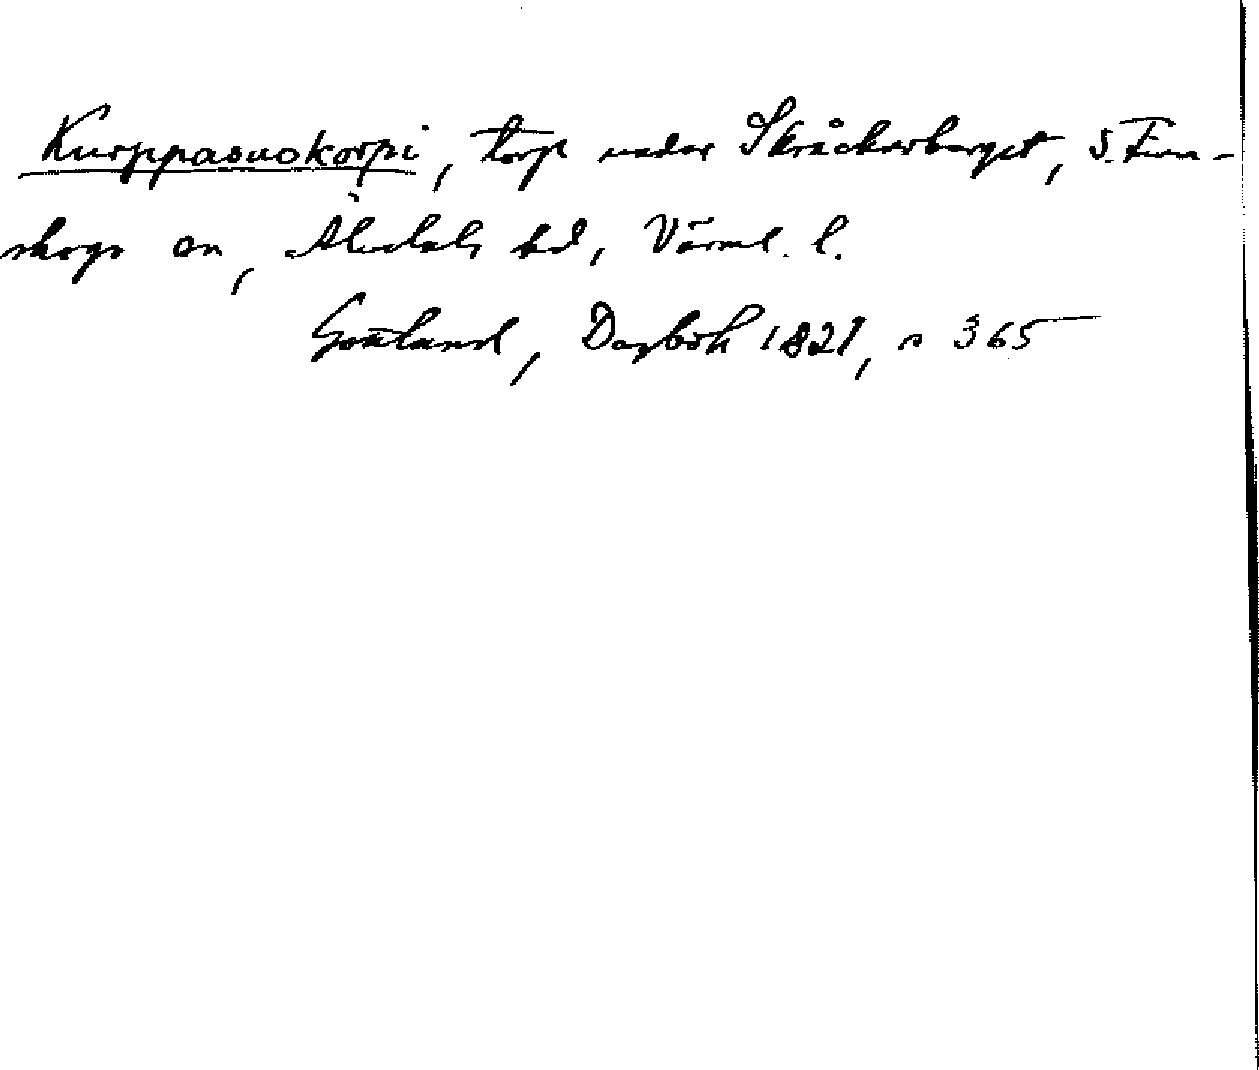 Kurppasuokorpi, torp under Skråckarberget, S. Finn-
skoga sn, Älvdals hd, Värml. l.
Gottlund, Dagbok 1821, s 365